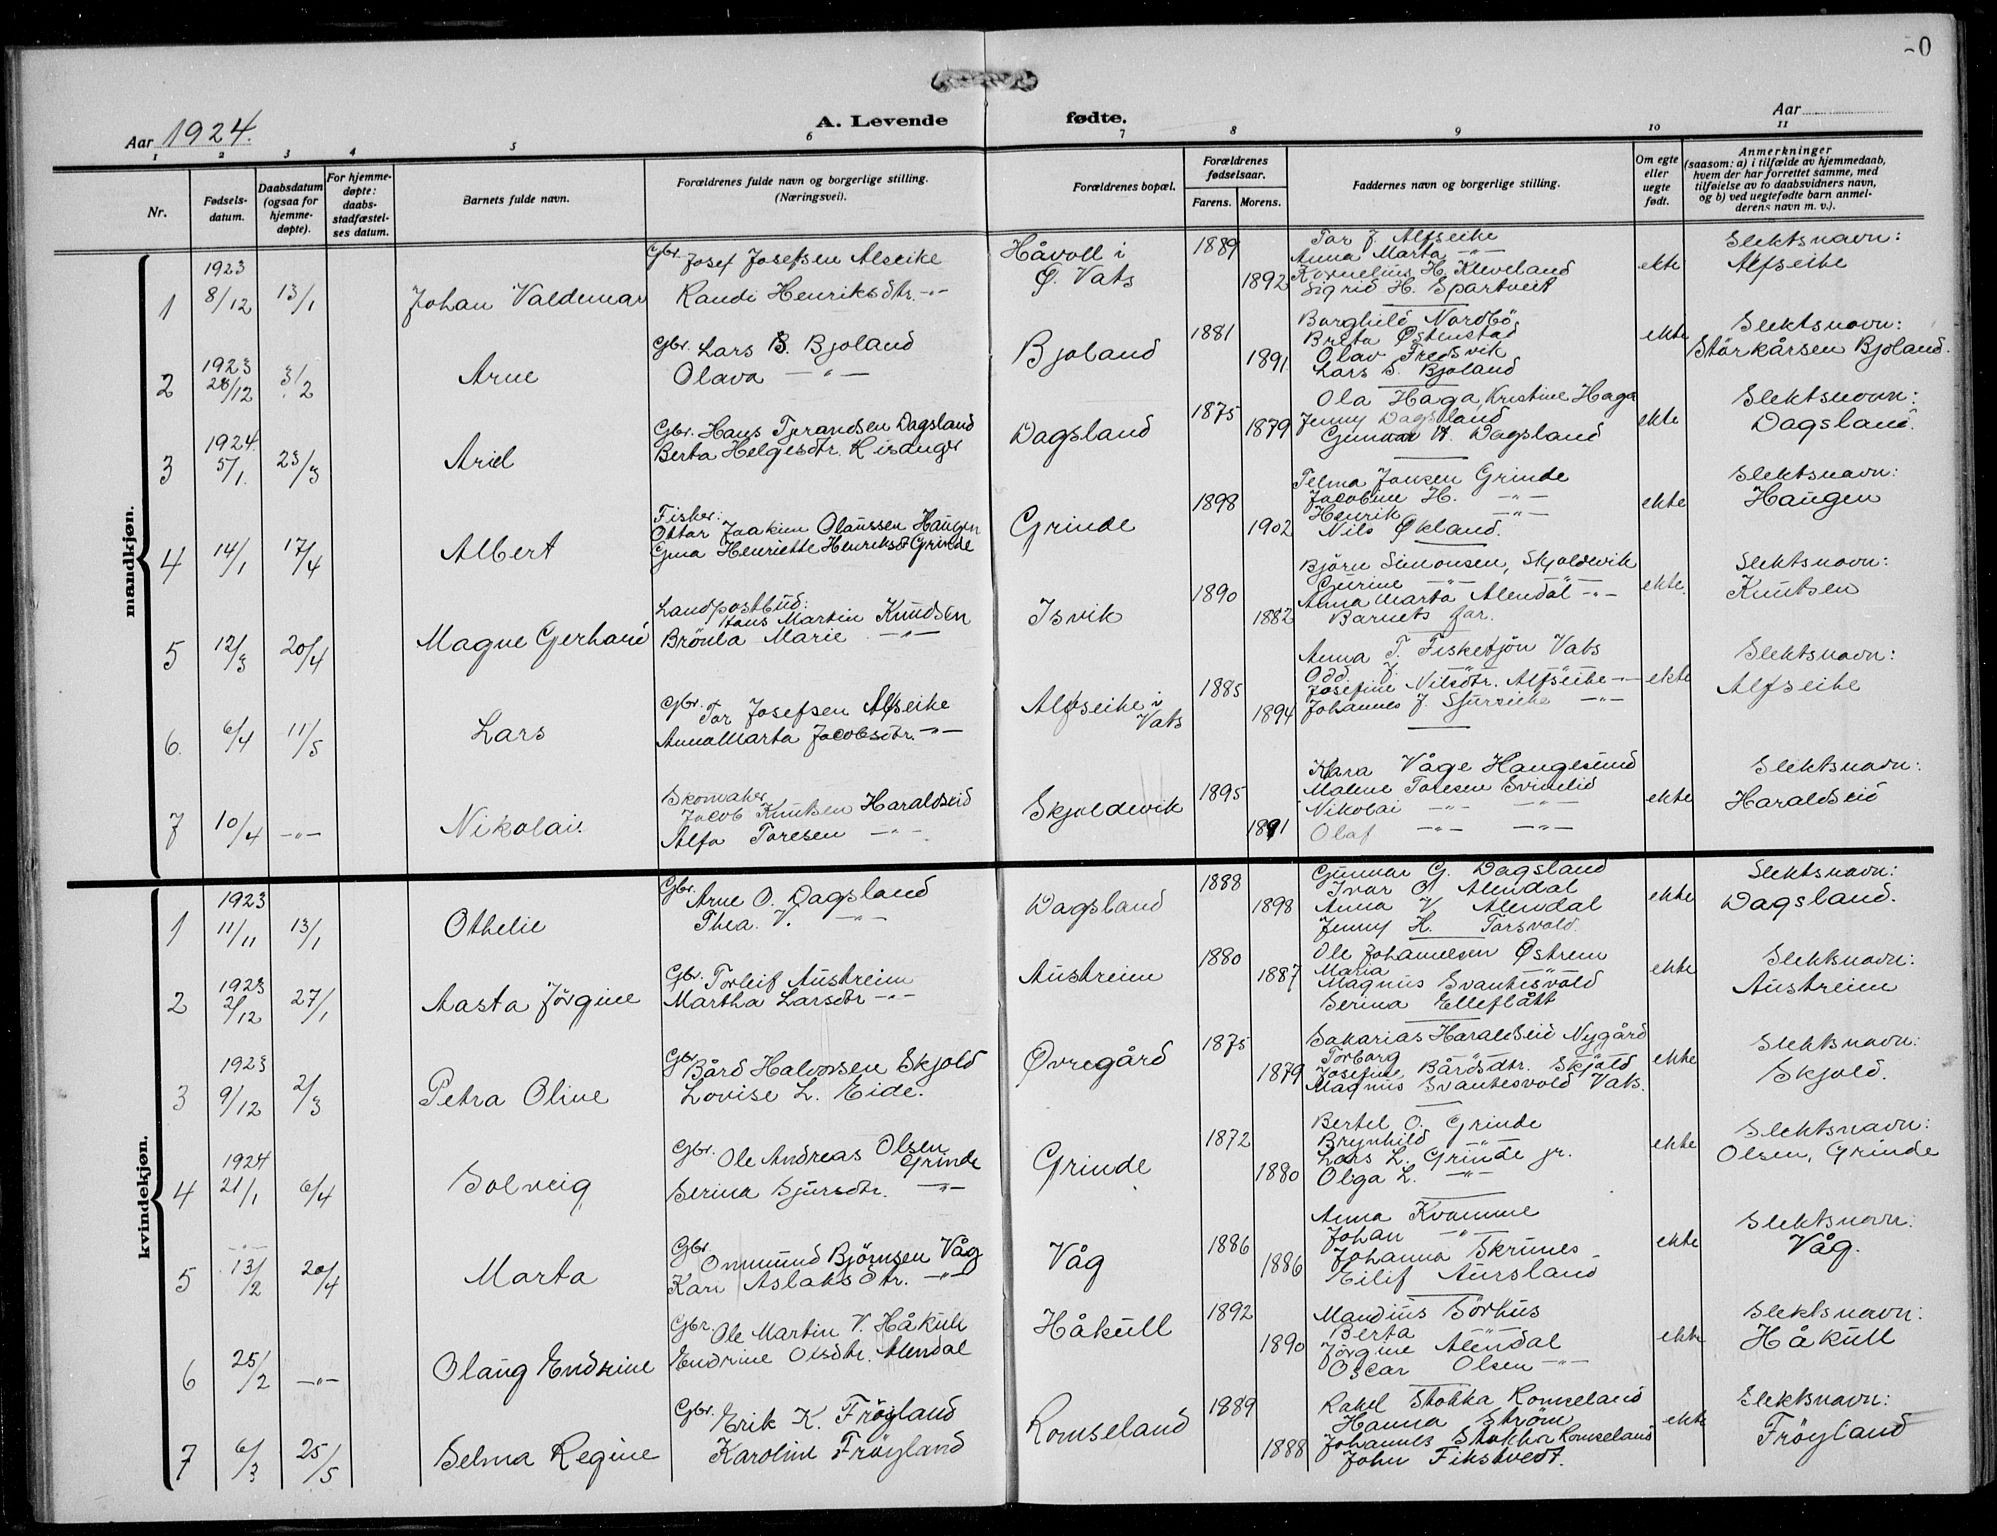 0
Aar 1924.
A. Levende fødte.
Aar
1 2 3 4 5 6 7 8 9 10 11
Nr.
Fødsels-
datum.
Daabsdatum
(ogsaa for
hjemme-
døpte).
For hjemme-
døpte:
daabs-
stadfæstel-
ses datum.
Barnets fulde navn.
Forældrenes fulde navn og borgerlige stilling.
(Næringsvei).
Forældrenes bopæl.
Forældrenes
fødselsaar.
Farens. Morens.
Faddernes navn og borgerlige stilling.
Om egte
eller
uegte
født.
Anmerkninger
(saasom: a) i tilfælde av hjemmedaab,
hvem der har forrettet samme, med
tilføielse av to daabsvidners navn,
og b) ved uegtefødte barn anmel-
derens navn m. v.).
mandkjøn.
1
1923
8/12
13/1
Johan Valdemar
Gbr. Josef Josefsen Alseike
Randi Henriksdtr. -"-
Håvoll i
Ø. Vats
1889
1892
Tor J. Alfseike
Anna Marta -"-
Kornelius H. Kleveland
Sigrid H. Spartveit
ekte
Slektsnavn:
Alfseike
2
1923
28/12
3/2
Arne
Gbr. Lars B. Bjoland
Olava -"-
Bjoland
1881
1891
Borghild Nordbö
Breta Østenstad
Olav Fredsvik
Lars S. Bjoland
ekte
Slektsnavn:
Störkårsen Bjoland.
3
1924.
5/1.
23/3
Arid
Gbr. Hans Tjerandsen Dagsland
Berta Helgesdtr. Risanger
Dagsland
1875
1879
Ola Haga, Kristine Haga
Jenny Dagsland
Gunnar H. Dagsland
ekte
Slektsnavn:
Dagsland.
4
14/1
17/4
Albert
Fisker:
Ottar Joakim Olaussen Haugen
Gina Henriette Henriksd Grinde
Grinde
1898
1902
Telma Jonsen Grinde
Jacobine H. -"-
Henrik -"-
Nils Økland.
ekte
Slektsnavn:
Haugen
5
12/3
20/4
Magne Gerhard
Landpostbud:
Hans Martin Knudsen
Brönla Marie -"-
Isvik
1890
1882
Björn Simonsen, Skjoldevik
Gurine -"- -"-
Anna Marta Alendal -"-
Barnets far.
ekte.
Slektsnavn:
Knutsen
6.
6/4
11/5
Lars
Gbr. Tor Josefsen Alfseike
Anna Marta Jacobsdtr. -"-
Alfseike i
Vats
1885
1894
Anna T. Fisketjön Vats
Odd. J. -"-
Josefine Nilsdtr. Alfseike -"-
Johannes J. Sjurseike -"-
ekte
Slektsnavn:
Alfseike
7
10/4
-"-
Nikolai.
Skomaker
Jacob Knutsen Haraldseid
Alfa Toresen -"-
Skjoldevik
1895
1891
Klara Våge Haugesund
Malene Toresen Svinelid
Nikolai -"- -"-
Olaf -"- -"-
ekte
Slektsnavn:
Haraldseid
kvindekjøn.
1
1923
11/11
13/1
Othelie
Gbr. Arne O. Dagsland
Thea. V. -"-
Dagsland
1888
1898
Gunnar G. Dagsland
Ivar O. Alendal
Anna V. Alendal
Jenny H. Torsvold.
ekte
Slektsnavn:
Dagsland.
2
1923
2/12
27/1
Aasta Jörgine
Gbr. Torleif Austreim
Martha Larsdtr -"-
Austreim
1880
1887
Ole Johannesen Östrem
Maria -"-
Magnus Svantesvold
Serina Elleflått
ekte
Slektsnavn:
Austreim
3
1923
9/12
2/3
Petra Oline
Gbr Bård Halvorsen Skjold
Lovise L. Eide.
Øvregård
1875
1879
Sakarias Haraldseid Nygård
Torborg
Josefine Bårdsdtr. Skjold
Magnus Svantesvold Vats.
ekte
Slektsnavn:
Skjold.
4
1924
21/1
6/4
Solveig
Gbr. Ole Andreas Olsen
Grinde
Serina Sjursdtr. -"-
Grinde
1872
1880
Bertel O. Grinde
Brynhild -"-
Lars L. Grinde jr.
Olga L. -"-
ekte
Slektsnavn:
Olsen, Grinde
5
13/2
20/4
Marta
Gbr Onmund Björnsen Våg
Kari Aslaksdtr. -"-
Våg
1886
1886
Anna Kvamme
Johan -"-
Johanna Skrunes
Eilif Aursland
ekte
Slektsnavn:
Våg.
6
25/2
-"-
Olaug Endrine
Gbr. Ole Martin V. Håkull
Endrine Olsdtr. Alendal
Håkull
1892
1890
Mandius Sörhus
Berta -"-
Jörgine Alendal
Oscar Olsen -"-
ekte
Slektsnavn:
Håkull
7
6/3
25/5
Selma Regine
Gbr. Erik K. Fröyland
Karoline Fröyland
Romseland
1889
1888
Rakel Stokka Romseland
Hanna Ström
Johannes Stokka Romseland
John Fikstvedt.
ekte
Slektsnavn:
Fröyland